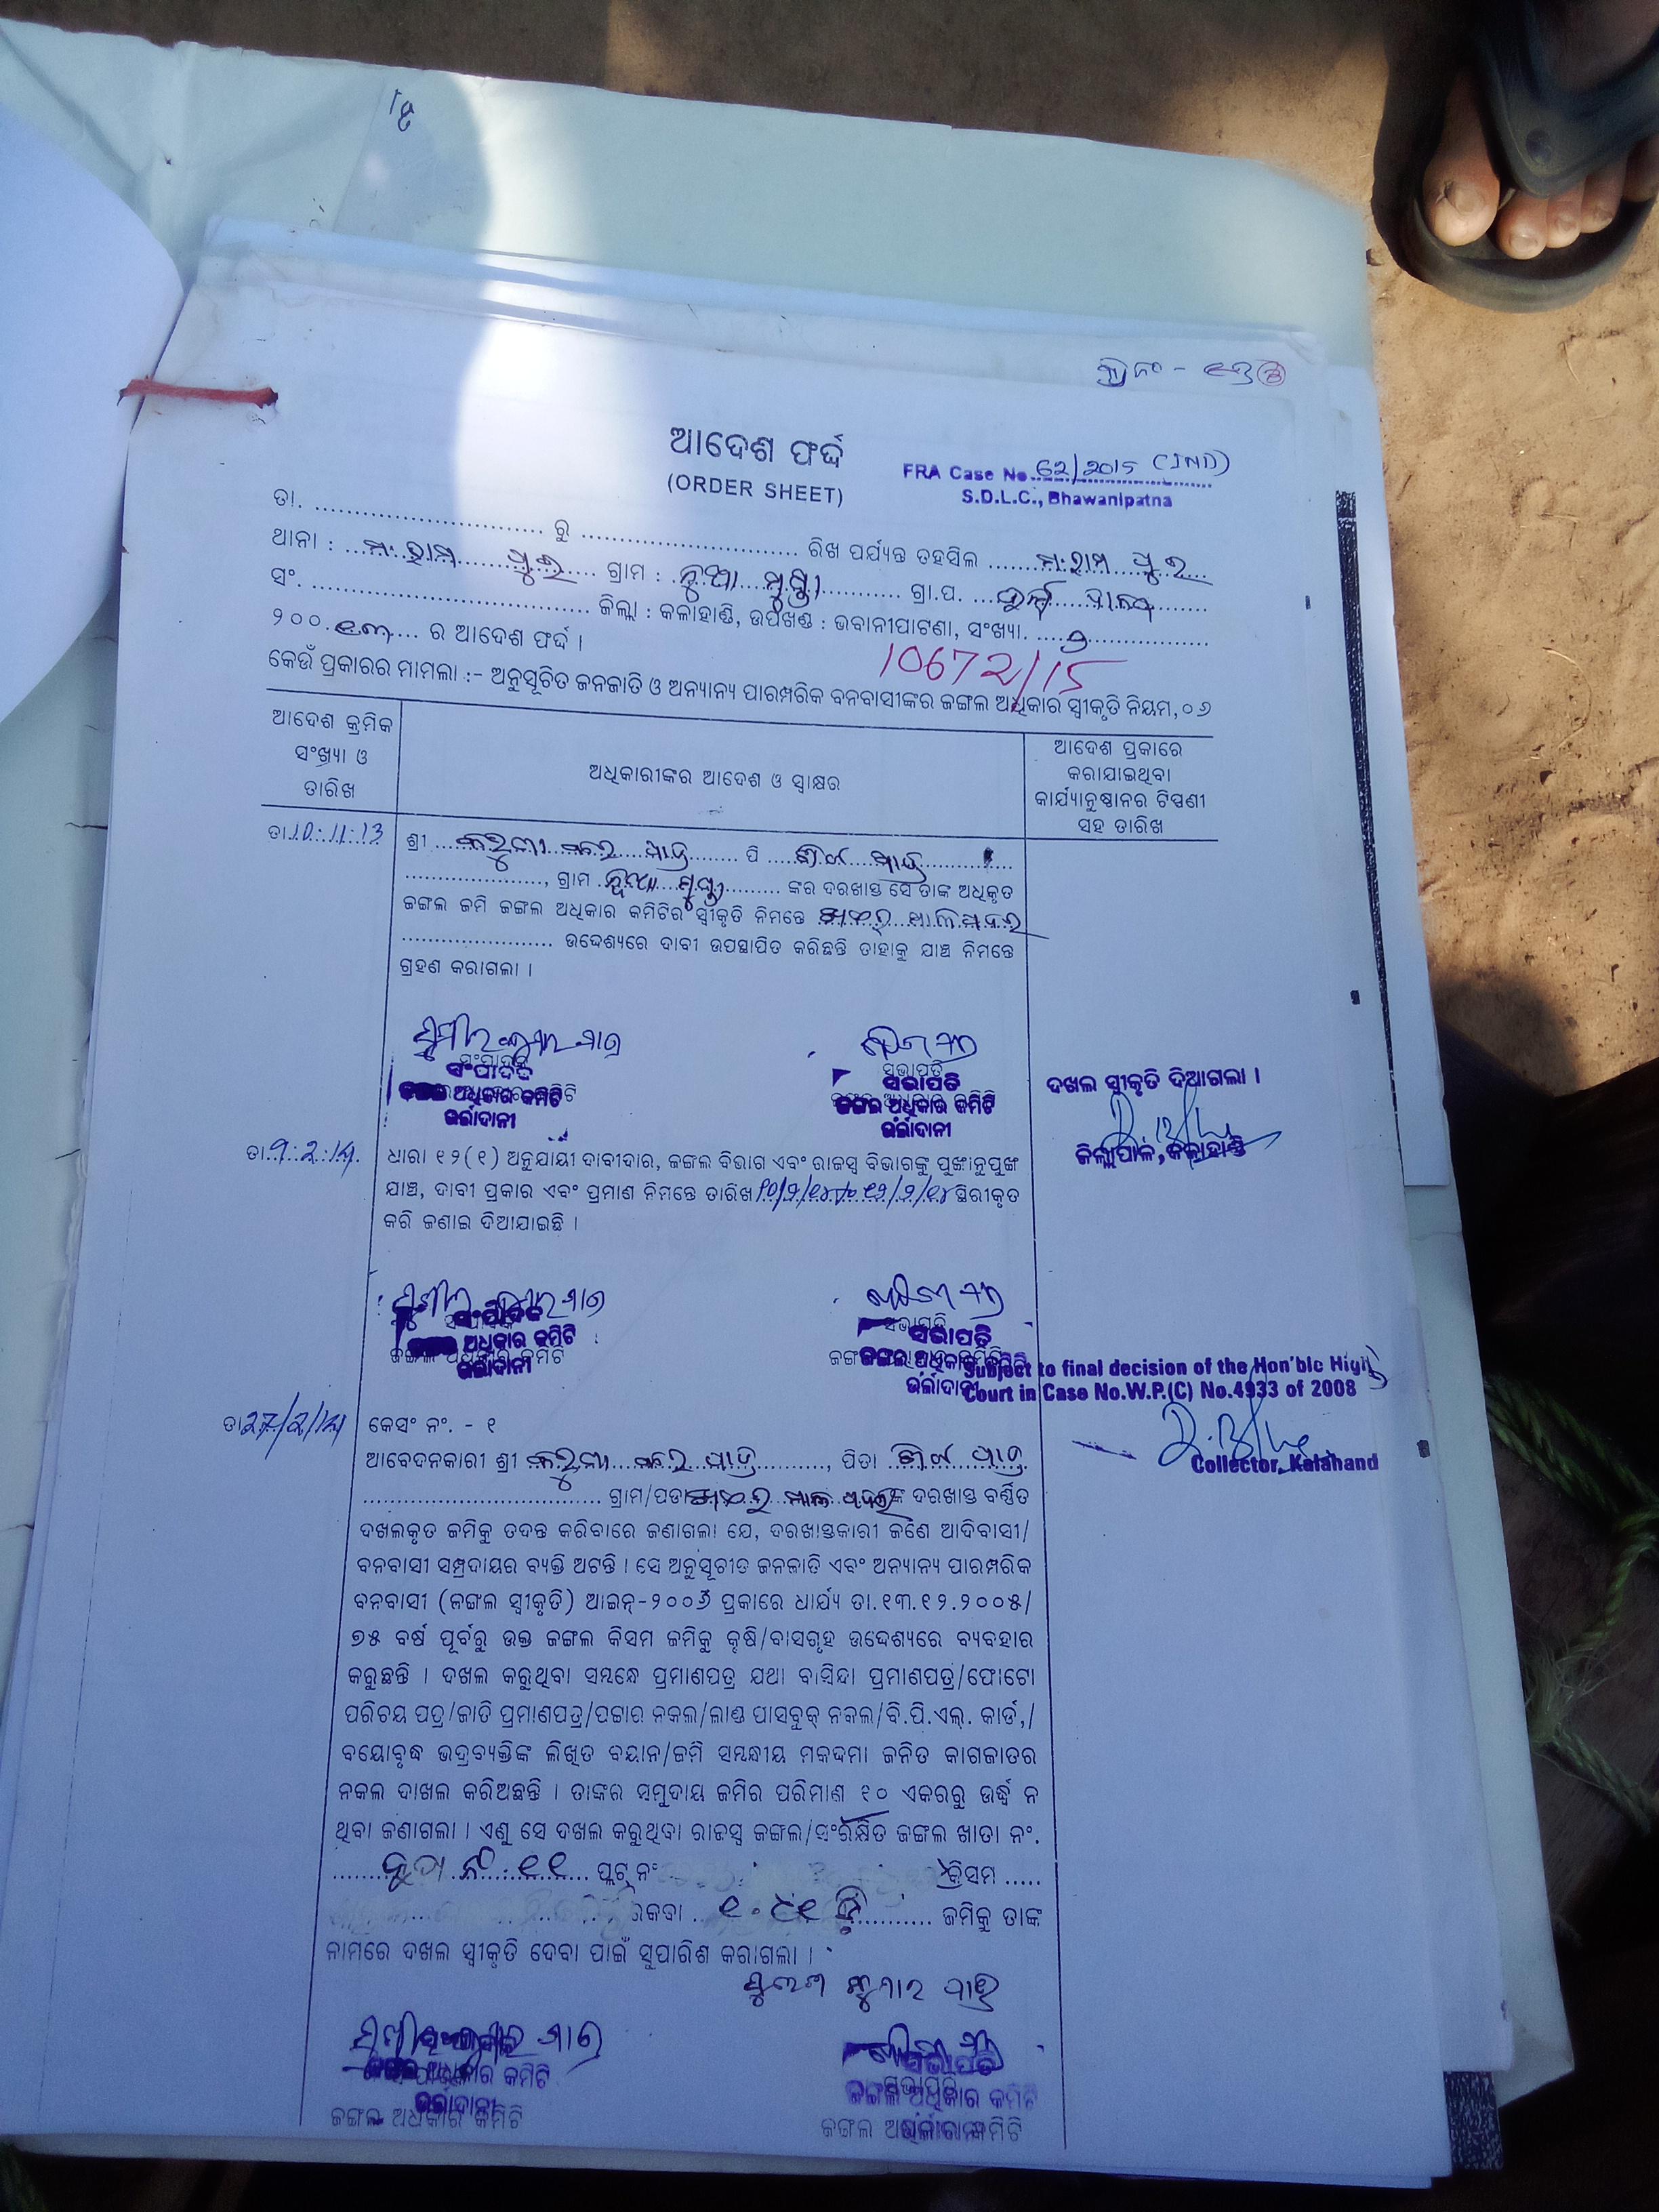 ଆଦେଶ ଫର୍ଦ୍ଦ
(ORDER SHEET)
FRA Case No. ୧୨/୨୦୧୫ (IND)
S.D.L.C., Bhawanipatna
ତା. .......... ରୁ .......... ରିଖ ପର୍ଯ୍ୟନ୍ତ ତହସିଲ ମ.ରାମପୁର
ଥାନା : ମ.ରାମପୁର ଗ୍ରାମ : ନୂଆ ମୁଣ୍ଡା ଗ୍ରା.ପ.
ସଂ. .......... ଜିଲ୍ଲା : କଳାହାଣ୍ଡି, ଉପଖଣ୍ଡ : ଭବାନୀପାଟଣା, ସଂଖ୍ୟା.
୨୦୦.୧୩ ର ଆଦେଶ ଫର୍ଦ୍ଦ ।
10672/15
କେଉଁ ପ୍ରକାରର ମାମଲା :- ଅନୁସୂଚିତ ଜନଜାତି ଓ ଅନ୍ୟାନ୍ୟ ପାରମ୍ପରିକ ବନବାସୀଙ୍କର ଜଙ୍ଗଲ ଅଧିକାର ସ୍ୱୀକୃତି ନିୟମ,୦୬
ଆଦେଶ କ୍ରମିକ
ସଂଖ୍ୟା ଓ
ତାରିଖ
ଅଧିକାରୀଙ୍କର ଆଦେଶ ଓ ସ୍ୱାକ୍ଷର
ଆଦେଶ ପ୍ରକାରେ
କରାଯାଇଥିବା
କାର୍ଯ୍ୟାନୁଷ୍ଠାନର ଟିପ୍ପଣୀ
ସହ ତାରିଖ
ତା.10.11.13
ଶ୍ରୀ ପାତ୍ର ପି ପାତ୍ର
, ଗ୍ରାମ ନୂଆ ମୁଣ୍ଡା ଙ୍କର ଦରଖାସ୍ତ ସେ ତାଙ୍କ ଅଧିକୃତ
ଜଙ୍ଗଲ ଜମି ଜଙ୍ଗଲ ଅଧିକାର କମିଟିର ସ୍ୱୀକୃତି ନିମନ୍ତେ
ଉଦ୍ଦେଶ୍ୟରେ ଦାବୀ ଉପସ୍ଥାପିତ କରିଛନ୍ତି ତାହାକୁ ଯାଞ୍ଚ ନିମନ୍ତେ
ଗ୍ରହଣ କରାଗଲା ।
ସଂପାଦକ
ଜଙ୍ଗଲ ଅଧିକାର କମିଟି
ଉର୍ଲାଦାନୀ
ସଭାପତି
ଜଙ୍ଗଲ ଅଧିକାର କମିଟି
ଉର୍ଲାଦାନୀ
ଦଖଲ ସ୍ୱୀକୃତି ଦିଆଗଲା ।
ଜିଲ୍ଲାପାଳ, କଳାହାଣ୍ଡି
ତା.9.2.14
ଧାରା ୧୨(୧) ଅନୁଯାୟୀ ଦାବୀଦାର, ଜଙ୍ଗଲ ବିଭାଗ ଏବଂ ରାଜସ୍ୱ ବିଭାଗକୁ ପୁଙ୍ଖାନୁପୁଙ୍ଖ
ଯାଞ୍ଚ, ଦାବୀ ପ୍ରକାର ଏବଂ ପ୍ରମାଣ ନିମନ୍ତେ ତାରିଖ ସ୍ଥିରୀକୃତ
କରି ଜଣାଇ ଦିଆଯାଇଛି ।
ସଂପାଦକ
ଜଙ୍ଗଲ ଅଧିକାର କମିଟି
ଉର୍ଲାଦାନୀ
ସଭାପତି
ଜଙ୍ଗଲ ଅଧିକାର କମିଟି
ଉର୍ଲାଦାନୀ
Subject to final decision of the Hon'ble High
Court in Case No.W.P.(C) No.4933 of 2008
Collector, Kalahandi
ତା27/2/14
କେସଂ ନଂ. - ୧
ଆବେଦନକାରୀ ଶ୍ରୀ ପାତ୍ର, ପିତା ପାତ୍ର
ଗ୍ରାମ/ପଡା ଙ୍କ ଦରଖାସ୍ତ ବର୍ଣ୍ଣିତ
ଦଖଲକୃତ ଜମିକୁ ତଦନ୍ତ କରିବାରେ ଜଣାଗଲା ଯେ, ଦରଖାସ୍ତକାରୀ ଜଣେ ଆଦିବାସୀ/
ବନବାସୀ ସମ୍ପ୍ରଦାୟର ବ୍ୟକ୍ତି ଅଟନ୍ତି । ସେ ଅନୁସୂଚୀତ ଜନଜାତି ଏବଂ ଅନ୍ୟାନ୍ୟ ପାରମ୍ପରିକ
ବନବାସୀ (ଜଙ୍ଗଲ ସ୍ୱୀକୃତି) ଆଇନ୍-୨୦୦୬ ପ୍ରକାରେ ଧାର୍ଯ୍ୟ ତା.୧୩.୧୨.୨୦୦୫/
୭୫ ବର୍ଷ ପୂର୍ବରୁ ଉକ୍ତ ଜଙ୍ଗଲ କିସମ ଜମିକୁ କୃଷି/ବାସଗୃହ ଉଦ୍ଦେଶ୍ୟରେ ବ୍ୟବହାର
କରୁଛନ୍ତି । ଦଖଲ କରୁଥିବା ସମ୍ବନ୍ଧେ ପ୍ରମାଣପତ୍ର ଯଥା ବାସିନ୍ଦା ପ୍ରମାଣପତ୍ର/ଫୋଟୋ
ପରିଚୟ ପତ୍ର/ଜାତି ପ୍ରମାଣପତ୍ର/ପଟ୍ଟାର ନକଲ/ଲାଣ୍ଡ ପାସବୁକ୍ ନକଲ/ବି.ପି.ଏଲ୍. କାର୍ଡ,/
ବୟୋବୃଦ୍ଧ ଭଦ୍ରବ୍ୟକ୍ତିଙ୍କ ଲିଖିତ ବୟାନ/ଜମି ସମ୍ବନ୍ଧୀୟ ମକଦ୍ଦମା ଜନିତ କାଗଜାତର
ନକଲ ଦାଖଲ କରିଅଛନ୍ତି । ତାଙ୍କର ସମୁଦାୟ ଜମିର ପରିମାଣ ୧୦ ଏକରରୁ ଉର୍ଦ୍ଧ୍ୱ ନ
ଥିବା ଜଣାଗଲା । ଏଣୁ ସେ ଦଖଲ କରୁଥିବା ରାଜସ୍ୱ ଜଙ୍ଗଲ/ସଂରକ୍ଷିତ ଜଙ୍ଗଲ ଖାତା ନଂ.
ନଂ. ୧୧ ପ୍ଲଟ୍ ନଂ କିସମ .....
ରକବା ଜମିକୁ ତାଙ୍କ
ନାମରେ ଦଖଲ ସ୍ୱୀକୃତି ଦେବା ପାଇଁ ସୁପାରିଶ କରାଗଲା ।
କୁମାର ପାତ୍ର
ଜଙ୍ଗଲ ଅଧିକାର କମିଟି
ଉର୍ଲାଦାନୀ
ସଭାପତି
ଜଙ୍ଗଲ ଅଧିକାର କମିଟି